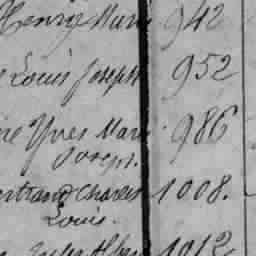 Henry Marie 942
Louis Joseph 952
Yves Marie 986
Joseph.
Bertrand Charles 1008.
Louis.
Jules Albert 1012